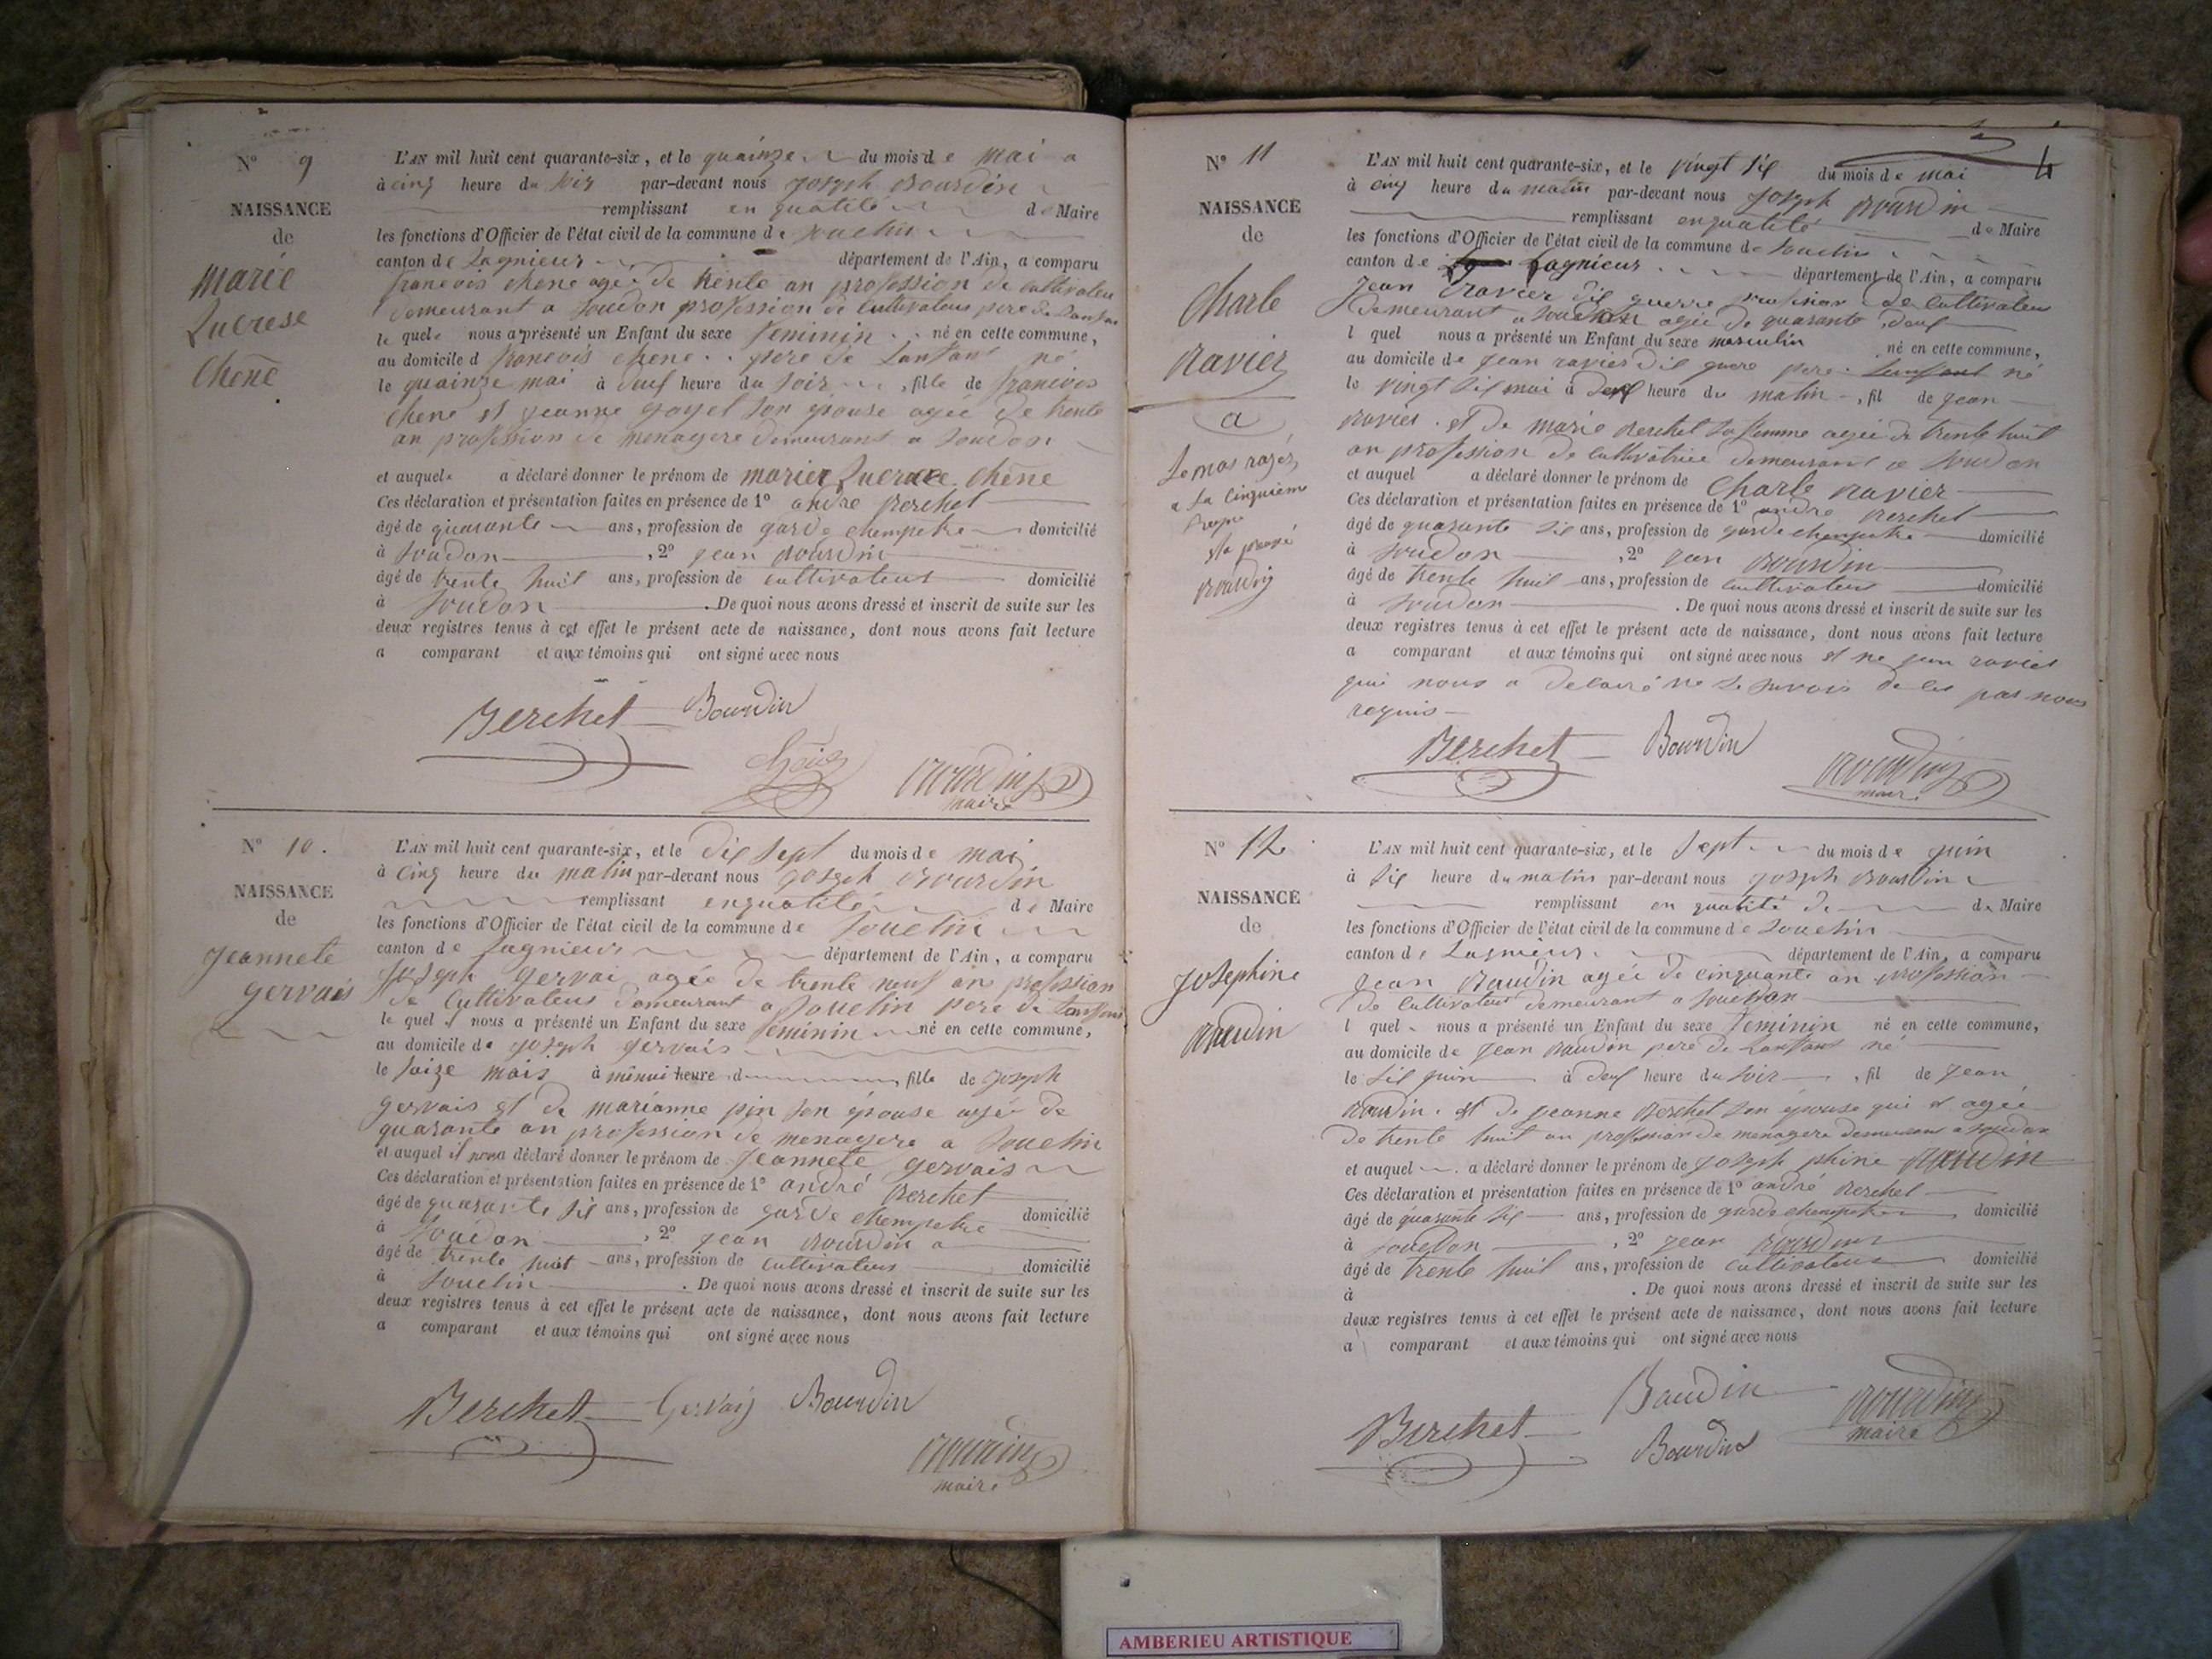 N° 9
NAISSANCE
de
marie
Lucrese
Chene
L'AN mil huit cent quarante-six, et le quainze du mois de mai a
à cinq heure du soir par-devant nous joseph Bourdin
remplissant en qualité de Maire
les fonctions d'Officier de l'état civil de la commune de Souclin
canton de Lagnieur département de l'Ain, a comparu
francois chene agée de trente an profession de cultivateur
demeurant a soudon profession de cultivateur pere de Lanfan
le quele nous a présenté un Enfant du sexe feminin né en cette commune,
au domicile d francois chene pere de Lanfant né
le quainze mai à deux heure du soir, fille de francois
chene et jeanne goyet son épouse agée de trente
an profession de menagere demeurant a soudon
et auquel a déclaré donner le prénom de marie Lucrece Chene
Ces déclaration et présentation faites en présence de 1° andre Berchet
âgé de quarante ans, profession de garde chempetre domicilié
à soudon, 2° jean Bourdin
âgé de trente huit ans, profession de cultivateur domicilié
à soudon. De quoi nous avons dressé et inscrit de suite sur les
deux registres tenus à cet effet le présent acte de naissance, dont nous avons fait lecture
a comparant et aux témoins qui ont signé avec nous
Berchet Bourdin
Bourdin
maire
N° 10.
NAISSANCE
de
jeannete
gervais
L'AN mil huit cent quarante-six, et le dix sept du mois de mai
à cinq heure du matin par-devant nous joseph Bourdin
remplissant enqualité de Maire
les fonctions d'Officier de l'état civil de la commune de souclin
canton de Lagnieur département de l'Ain, a comparu
joseph gervai agée de trente neuf an profession
de cultivateur demeurant a souclin pere de Lanfant
le quel nous a présenté un Enfant du sexe feminin né en cette commune,
au domicile de joseph gervais
le saize mais à minui heure d, fille de joseph
gervais et de marianne pin son épouse agée de
quarante an profession de menagere a souclin
et auquel il nous a déclaré donner le prénom de jeannete gervais
Ces déclaration et présentation faites en présence de 1° andré Berchet
âgé de quarante six ans, profession de garde chempetre domicilié
à soudon, 2° jean Bourdin a
âgé de trente huit ans, profession de cultivateur domicilié
à souclin. De quoi nous avons dressé et inscrit de suite sur les
deux registres tenus à cet effet le présent acte de naissance, dont nous avons fait lecture
a comparant et aux témoins qui ont signé avec nous
Berchet Gervais Bourdin
Bourdin
maire
4
N° 11
NAISSANCE
de
Charle
Ravier
a
Le mos rayér
a La Cinquieme
Bourdin
L'AN mil huit cent quarante-six, et le vingt six du mois de mai
à cinq heure du matin par-devant nous joseph Bourdin
remplissant enqualité de Maire
les fonctions d'Officier de l'état civil de la commune de souclin
canton de Lagnieur département de l'Ain, a comparu
jean Ravier dit guerre profession de cultivateur
demeurant a soudon agée de quarante deux
l quel nous a présenté un Enfant du sexe masculin né en cette commune,
au domicile de jean ravier dit guere pere Lenfant né
le vingt six mai à deux heure du matin, fil de jean
ravier et de marie Berchet sa femme agée de trente huit
an profession de cultivatrice demeurant a soudon
et auquel a déclaré donner le prénom de Charle Ravier
Ces déclaration et présentation faites en présence de 1° andre Berchet
âgé de quarante six ans, profession de garde chempetre domicilié
à soudon, 2° jean Bourdin
âgé de trente huit ans, profession de cultivateur domicilié
à soudon. De quoi nous avons dressé et inscrit de suite sur les
deux registres tenus à cet effet le présent acte de naissance, dont nous avons fait lecture
a comparant et aux témoins qui ont signé avec nous et ne jean ravier
qui nous a delairé ne le savois de les pas nous
requis
Berchet Bourdin
Bourdin
maire
N° 12
NAISSANCE
de
josephine
Baudin
L'AN mil huit cent quarante-six, et le sept du mois de juin
à six heure du matin par-devant nous joseph Bourdin
remplissant en qualité de de Maire
les fonctions d'Officier de l'état civil de la commune de souclin
canton de Lagnieur département de l'Ain, a comparu
jean Baudin agée de cinquante an profession
de cultivateur demeurant a souedon
l quel nous a présenté un Enfant du sexe feminin né en cette commune,
au domicile de jean Baudin pere de Lanfant né
le six juin à deux heure du soir, fil de jean
Baudin et de jeanne Berchet son épouse qui et agée
de trente huit an profession de menagere demeurant a soudon
et auquel a déclaré donner le prénom de joseph phine Baudin
Ces déclaration et présentation faites en présence de 1° andré Berchet
âgé de quarante six ans, profession de garde chempetre domicilié
à souedon, 2° jean Bourdin
âgé de trente huit ans, profession de cultivateur domicilié
à. De quoi nous avons dressé et inscrit de suite sur les
deux registres tenus à cet effet le présent acte de naissance, dont nous avons fait lecture
a comparant et aux témoins qui ont signé avec nous
Berchet Baudin Bourdin
Bourdin maire
AMBERIEU ARTISTIQUE